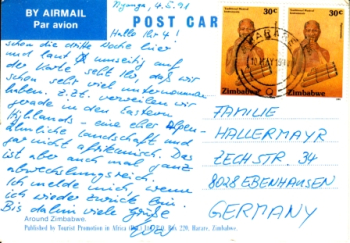 BY AIRMAIL
Par avion
POST CAR
Nyanga, 4.5.91
Hallo Ihr 4!
schon die dritte Woche hier
und laut umseitig auf
der Karte seht Ihr, daß wir
schon sehr viel unternommen
haben. z.Zt. verweilen wir
gerade in den Eastern
Highlands - eine eher Alpen-
ähnliche Landschaft und
gar nicht afrikanisch. Das
ist aber auch mal ganz
abwechslungsreich.
Ich melde mich, wenn
ich wieder zurück bin.
Bis dahin viele Grüße
Traditional Musical Instruments
30c
Zimbabwe
Traditional Musical Instruments
30c
Zimbabwe
HARARE
MAY
FAMILIE
HALLERMAYR
ZECHSTR. 34
8028 EBENHAUSEN
GERMANY
Around Zimbabwe.
Published by Tourist Promotion in Africa Box 220, Harare, Zimbabwe.